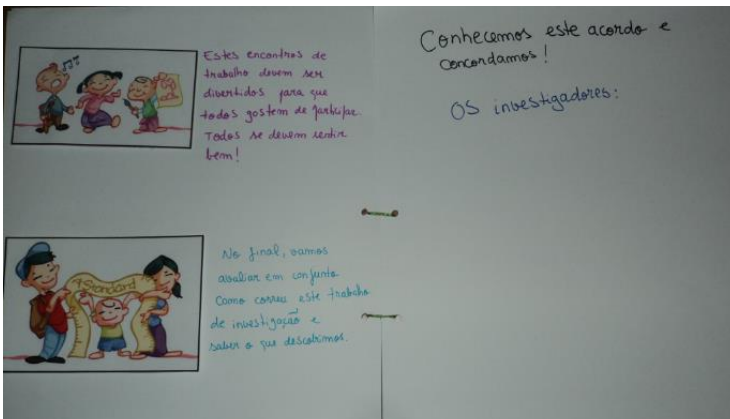 Estes encontros de
trabalho devem ser
divertidos para que
todos gostem de participar.
Todos se devem sentir
bem!
7 Standard
No final, vamos
avaliar em conjunto
como correu este trabalho
de investigação e
saber o que descobrimos.
Conhecemos este acordo e
concordamos!
Os investigadores: